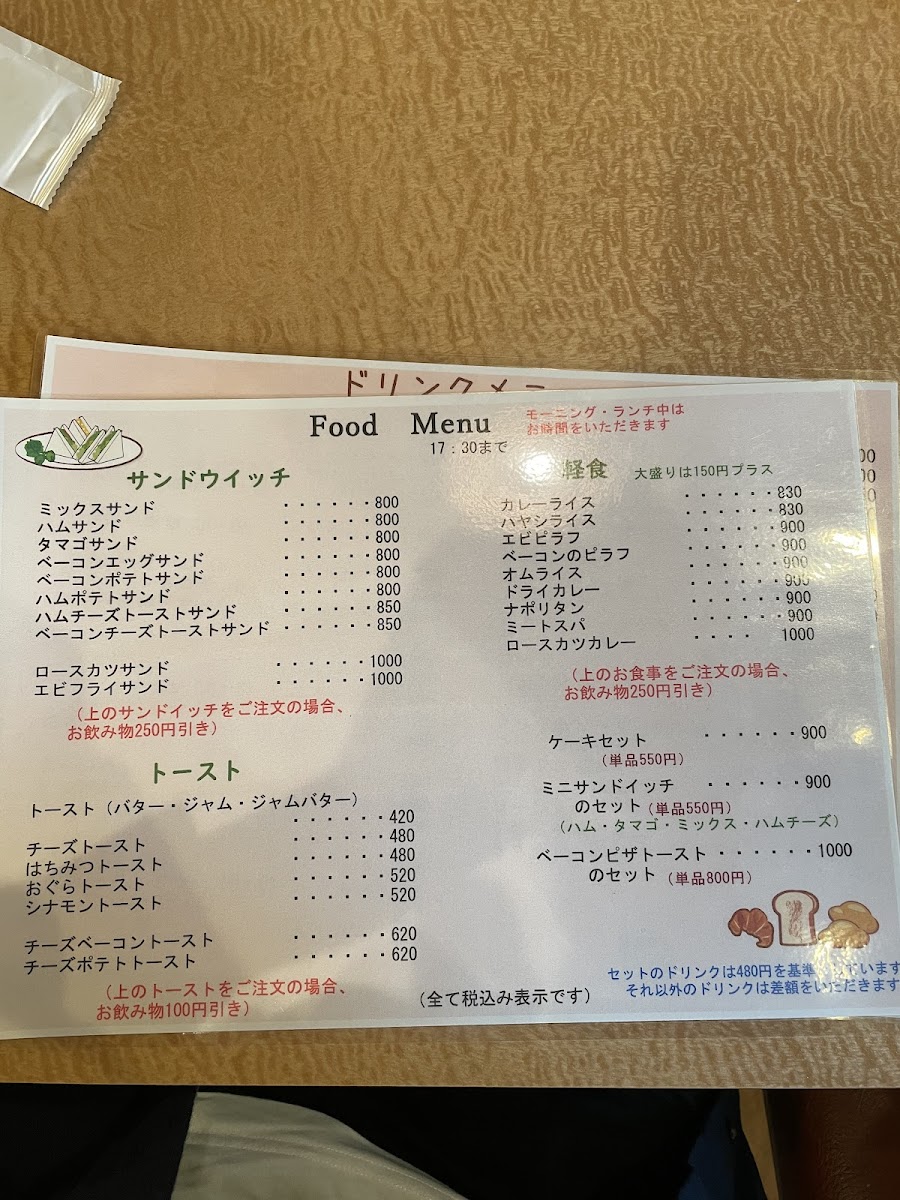 ドリンクメ
Food Menu
17：30まで
モーニング・ランチ中は
お時間をいただきます
サンドウイッチ
ミックスサンド ・・・・・・800
ハムサンド ・・・・・・800
タマゴサンド ・・・・・・800
ベーコンエッグサンド ・・・・・・800
ベーコンポテトサンド ・・・・・・800
ハムポテトサンド ・・・・・・800
ハムチーズトーストサンド ・・・・・・850
ベーコンチーズトーストサンド ・・・・・・850
ロースカツサンド ・・・・・・1000
エビフライサンド ・・・・・・1000
（上のサンドイッチをご注文の場合、
お飲み物250円引き）
トースト
トースト（バター・ジャム・ジャムバター）
・・・・・・420
チーズトースト ・・・・・・480
はちみつトースト ・・・・・・480
おぐらトースト ・・・・・・520
シナモントースト ・・・・・・520
チーズベーコントースト ・・・・・・620
チーズポテトトースト ・・・・・・620
（上のトーストをご注文の場合、
お飲み物100円引き）
軽食 大盛りは150円プラス
カレーライス ・・・・・・830
ハヤシライス ・・・・・・830
エビピラフ ・・・・・・900
ベーコンのピラフ ・・・・・・900
オムライス ・・・・・・900
ドライカレー ・・・・・・900
ナポリタン ・・・・・・900
ミートスパ ・・・・・・900
ロースカツカレー ・・・・ 1000
（上のお食事をご注文の場合、
お飲み物250円引き）
ケーキセット ・・・・・・900
（単品550円）
ミニサンドイッチ ・・・・・・900
のセット（単品550円）
（ハム・タマゴ・ミックス・ハムチーズ）
ベーコンピザトースト・・・・・・1000
のセット（単品800円）
（全て税込み表示です）
セットのドリンクは480円を基準 ています
それ以外のドリンクは差額をいただきます